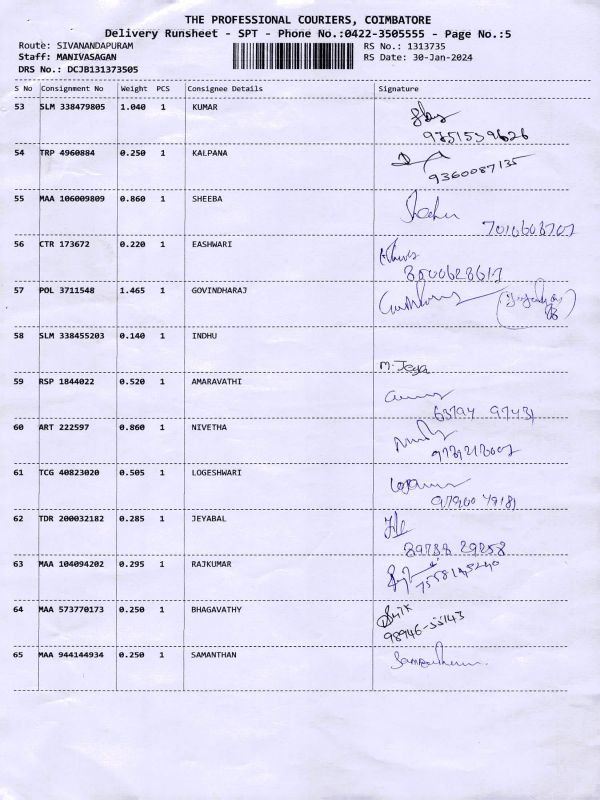 THE PROFESSIONAL COURIERS, COIMBATORE
Delivery Runsheet - SPT - Phone No.:0422-3505555 - Page No.:5
Route: SIVANANDAPURAM RS No.: 1313735
Staff: MANIVASAGAN RS Date: 30-Jan-2024
DRS No.: DCJB131373505
S No Consignment No Weight PCS Consignee Details Signature
53 SLM 338479805 1.040 1 KUMAR
9751539626
54 TRP 4960884 0.250 1 KALPANA
9360087135
55 MAA 106009809 0.860 1 SHEEBA
56 CTR 173672 0.220 1 EASHWARI
57 POL 3711548 1.465 1 GOVINDHARAJ
58 SLM 338455203 0.140 1 INDHU
M. Jega
59 RSP 1844022 0.520 1 AMARAVATHI
63794 97431
60 ART 222597 0.860 1 NIVETHA
61 TCG 40823020 0.505 1 LOGESHWARI
97900 79181
62 TDR 200032182 0.285 1 JEYABAL
89738 29258
63 MAA 104094202 0.295 1 RAJKUMAR
64 MAA 573770173 0.250 1 BHAGAVATHY
98946-55143
65 MAA 944144934 0.250 1 SAMANTHAN